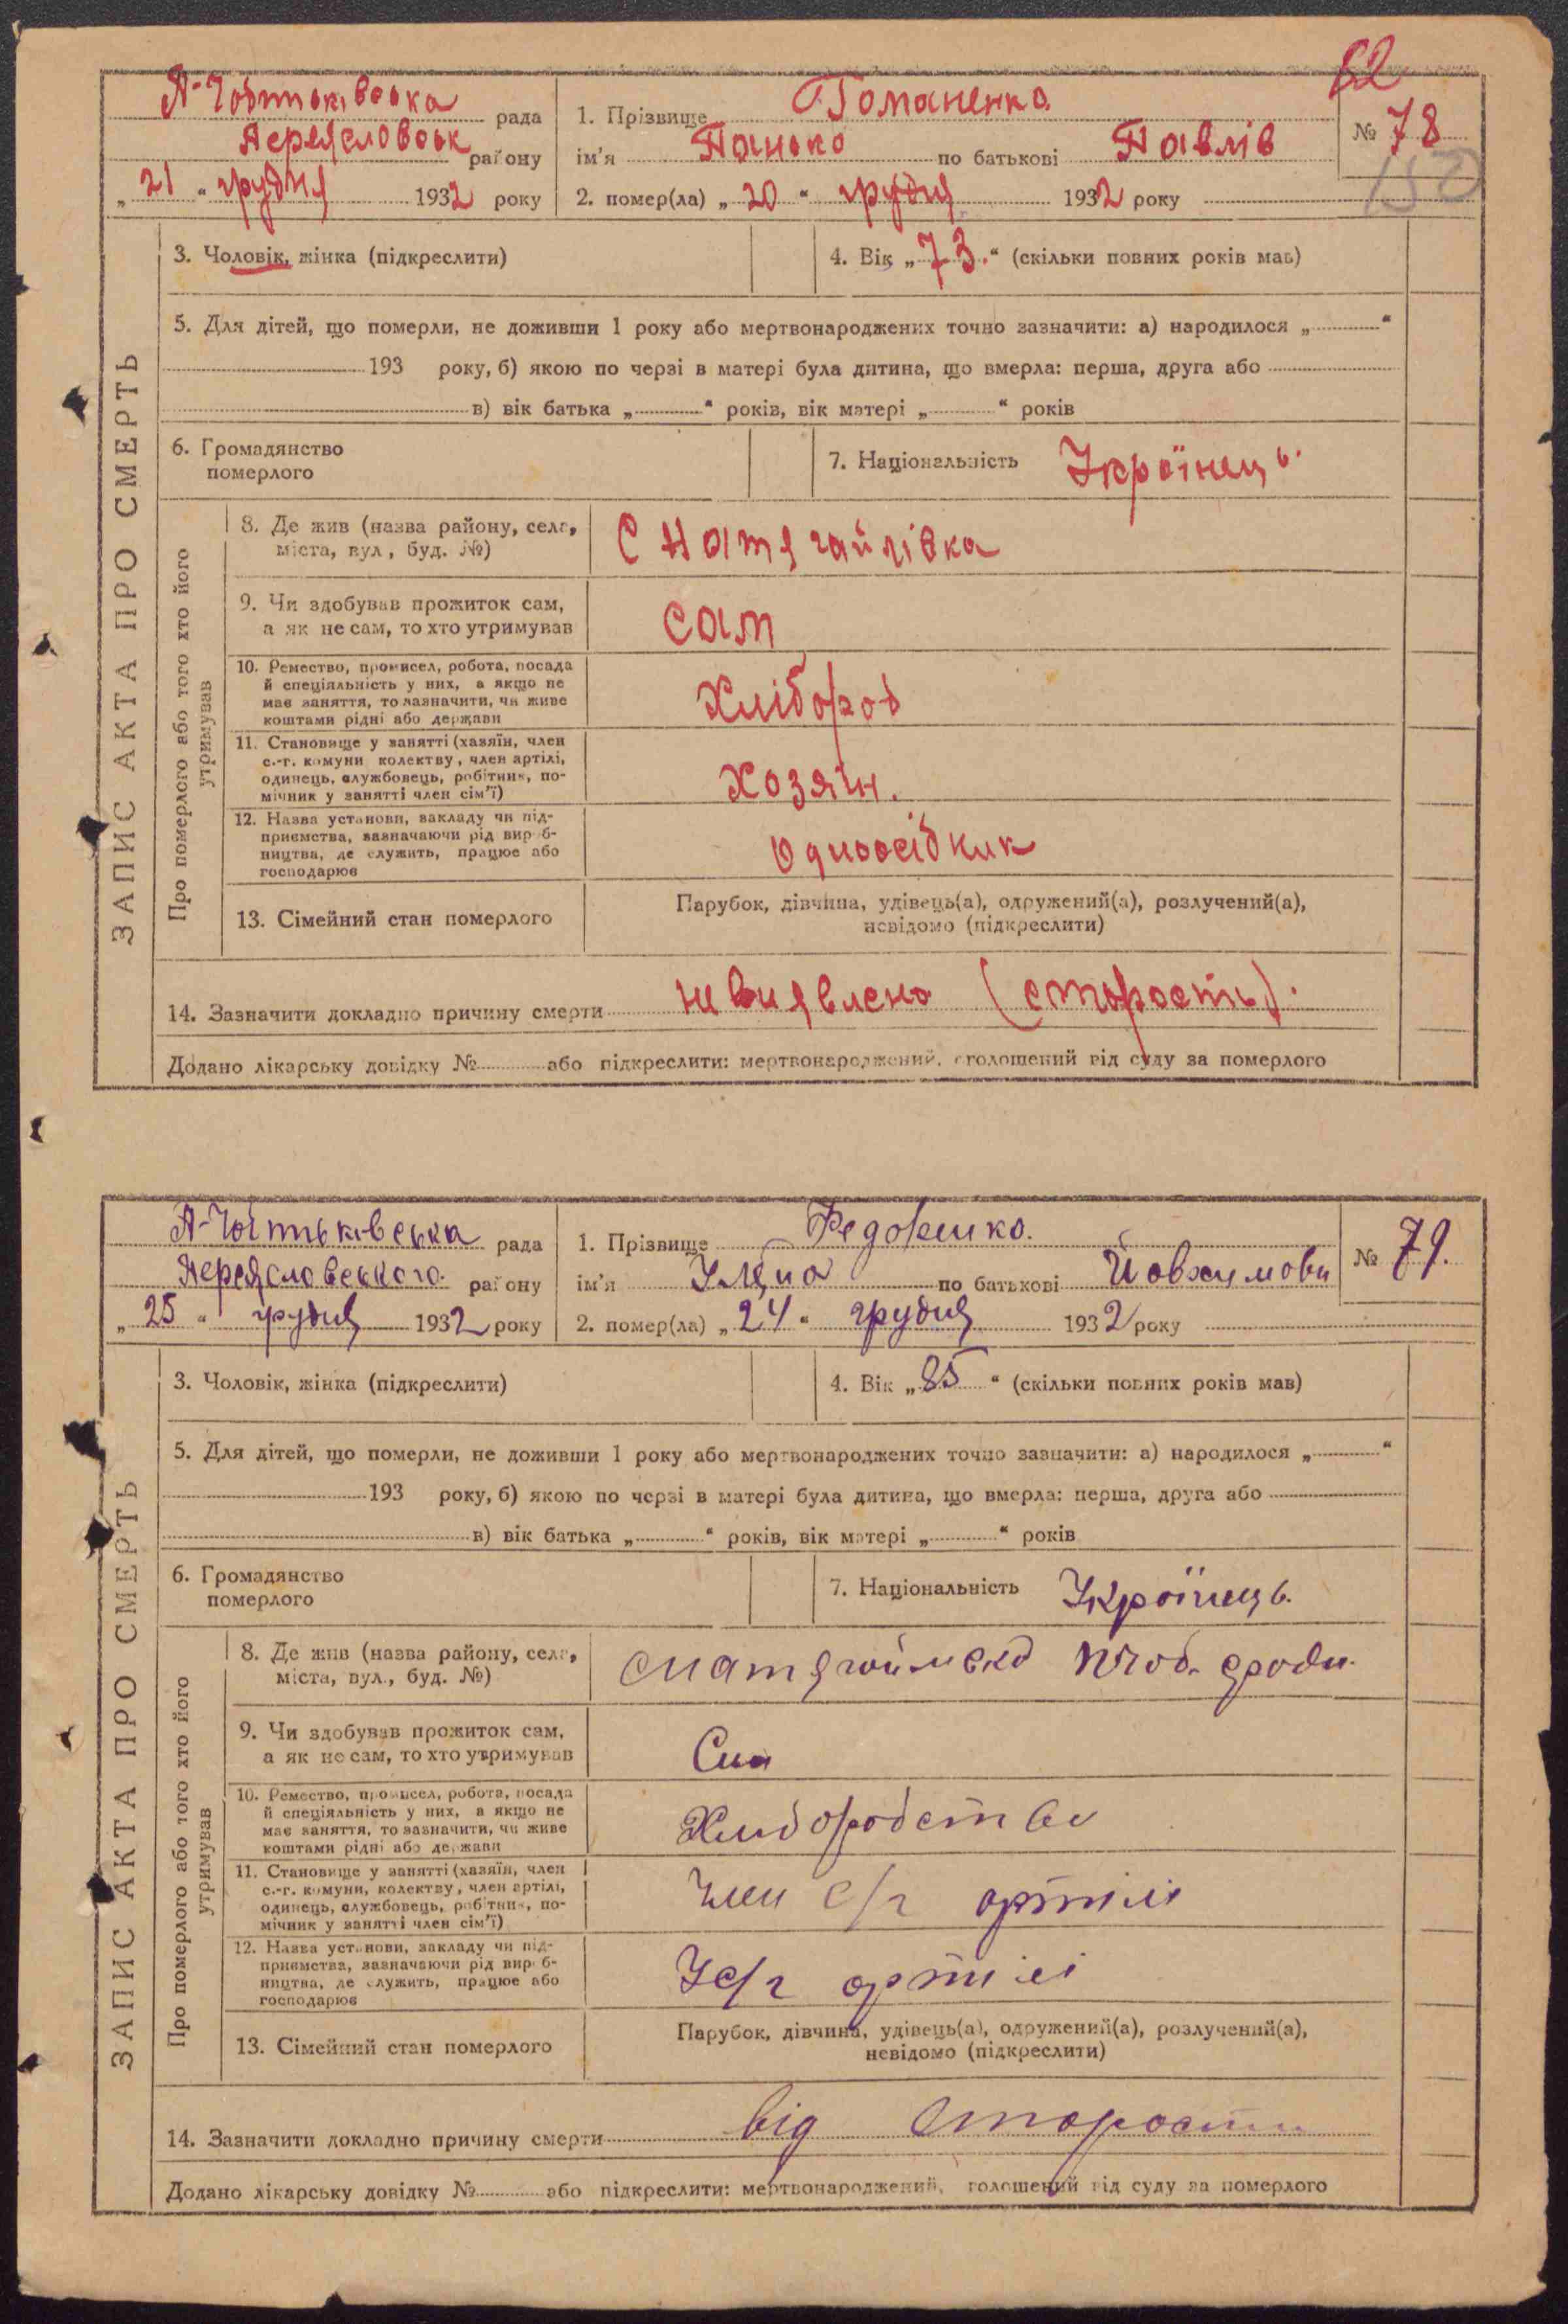 62
П-Чобитьківська рада
Переяславськ району
„ 21 “ грудня 1932 року
1. Прізвище Гоманенко
ім’я Панько по батькові Павлів
2. помер(ла) „ 20 “ грудня 1932 року
№ 78
150
ЗАПИС АКТА ПРО СМЕРТЬ
3. Чоловік, жінка (підкреслити)
4. Вік „ 73. “ (скільки повних років мав)
5. Для дітей, що померли, не доживши 1 року або мертвонароджених точно зазначити: а) народилося „ “
193 року, б) якою по черзі в матері була дитина, що вмерла: перша, друга або
в) вік батька „ “ років, вік матері „ “ років
6. Громадянство
померлого
7. Національність Українець.
Про померлого або того хто його
утримував
8. Де жив (назва району, села,
міста, вул., буд. №)
С Натягайлівка
9. Чи здобував прожиток сам,
а як не сам, то хто утримував
сам
10. Ремество, промисел, робота, посада
й спеціяльність у них, а якщо не
має заняття, то зазначити, чи живе
коштами рідні або держави
Хлібороб
11. Становище у занятті (хазяїн, член
с.-г. комуни колектву, член артілі,
одинець, службовець, робітник, по-
мічник у занятті член сім’ї)
Хозяїн.
12. Назва установи, закладу чи під-
приємства, зазначаючи рід вироб-
ництва, де служить, працює або
господарює
Одноосібник
13. Сімейний стан померлого
Парубок, дівчина, удівець(а), одружений(а), розлучений(а),
невідомо (підкреслити)
14. Зазначити докладно причину смерти невиявлено (старость).
Додано лікарську довідку № або підкреслити: мертвонароджений, оголошений від суду за померлого
П-Чобитьківська рада
Переяславського району
„ 25 “ грудня 1932 року
1. Прізвище Федоренко.
ім’я Уляна по батькові Йовхимовн
2. помер(ла) „ 24 “ грудня 1932 року
№ 79.
ЗАПИС АКТА ПРО СМЕРТЬ
3. Чоловік, жінка (підкреслити)
4. Вік „ 85 “ (скільки повних років мав)
5. Для дітей, що померли, не доживши 1 року або мертвонароджених точно зазначити: а) народилося „ “
193 року, б) якою по черзі в матері була дитина, що вмерла: перша, друга або
в) вік батька „ “ років, вік матері „ “ років
6. Громадянство
померлого
7. Національність Українець.
Про померлого або того хто його
утримував
8. Де жив (назва району, села,
міста, вул., буд. №)
9. Чи здобував прожиток сам,
а як не сам, то хто утримував
Син
10. Ремество, промисел, робота, посада
й спеціяльність у них, а якщо не
має заняття, то зазначити, чи живе
коштами рідні або держави
Хліборобство
11. Становище у занятті (хазяїн, член
с.-г. комуни, колектву, член артілі,
одинець, службовець, робітник, по-
мічник у занятті член сім’ї)
Член с/г артілі
12. Назва установи, закладу чи під-
приємства, зазначаючи рід вироб-
ництва, де служить, працює або
господарює
У с/г артілі
13. Сімейний стан померлого
Парубок, дівчина, удівець(а), одружений(а), розлучений(а),
невідомо (підкреслити)
14. Зазначити докладно причину смерти від старости
Додано лікарську довідку № або підкреслити: мертвонароджений, оголошений від суду за померлого